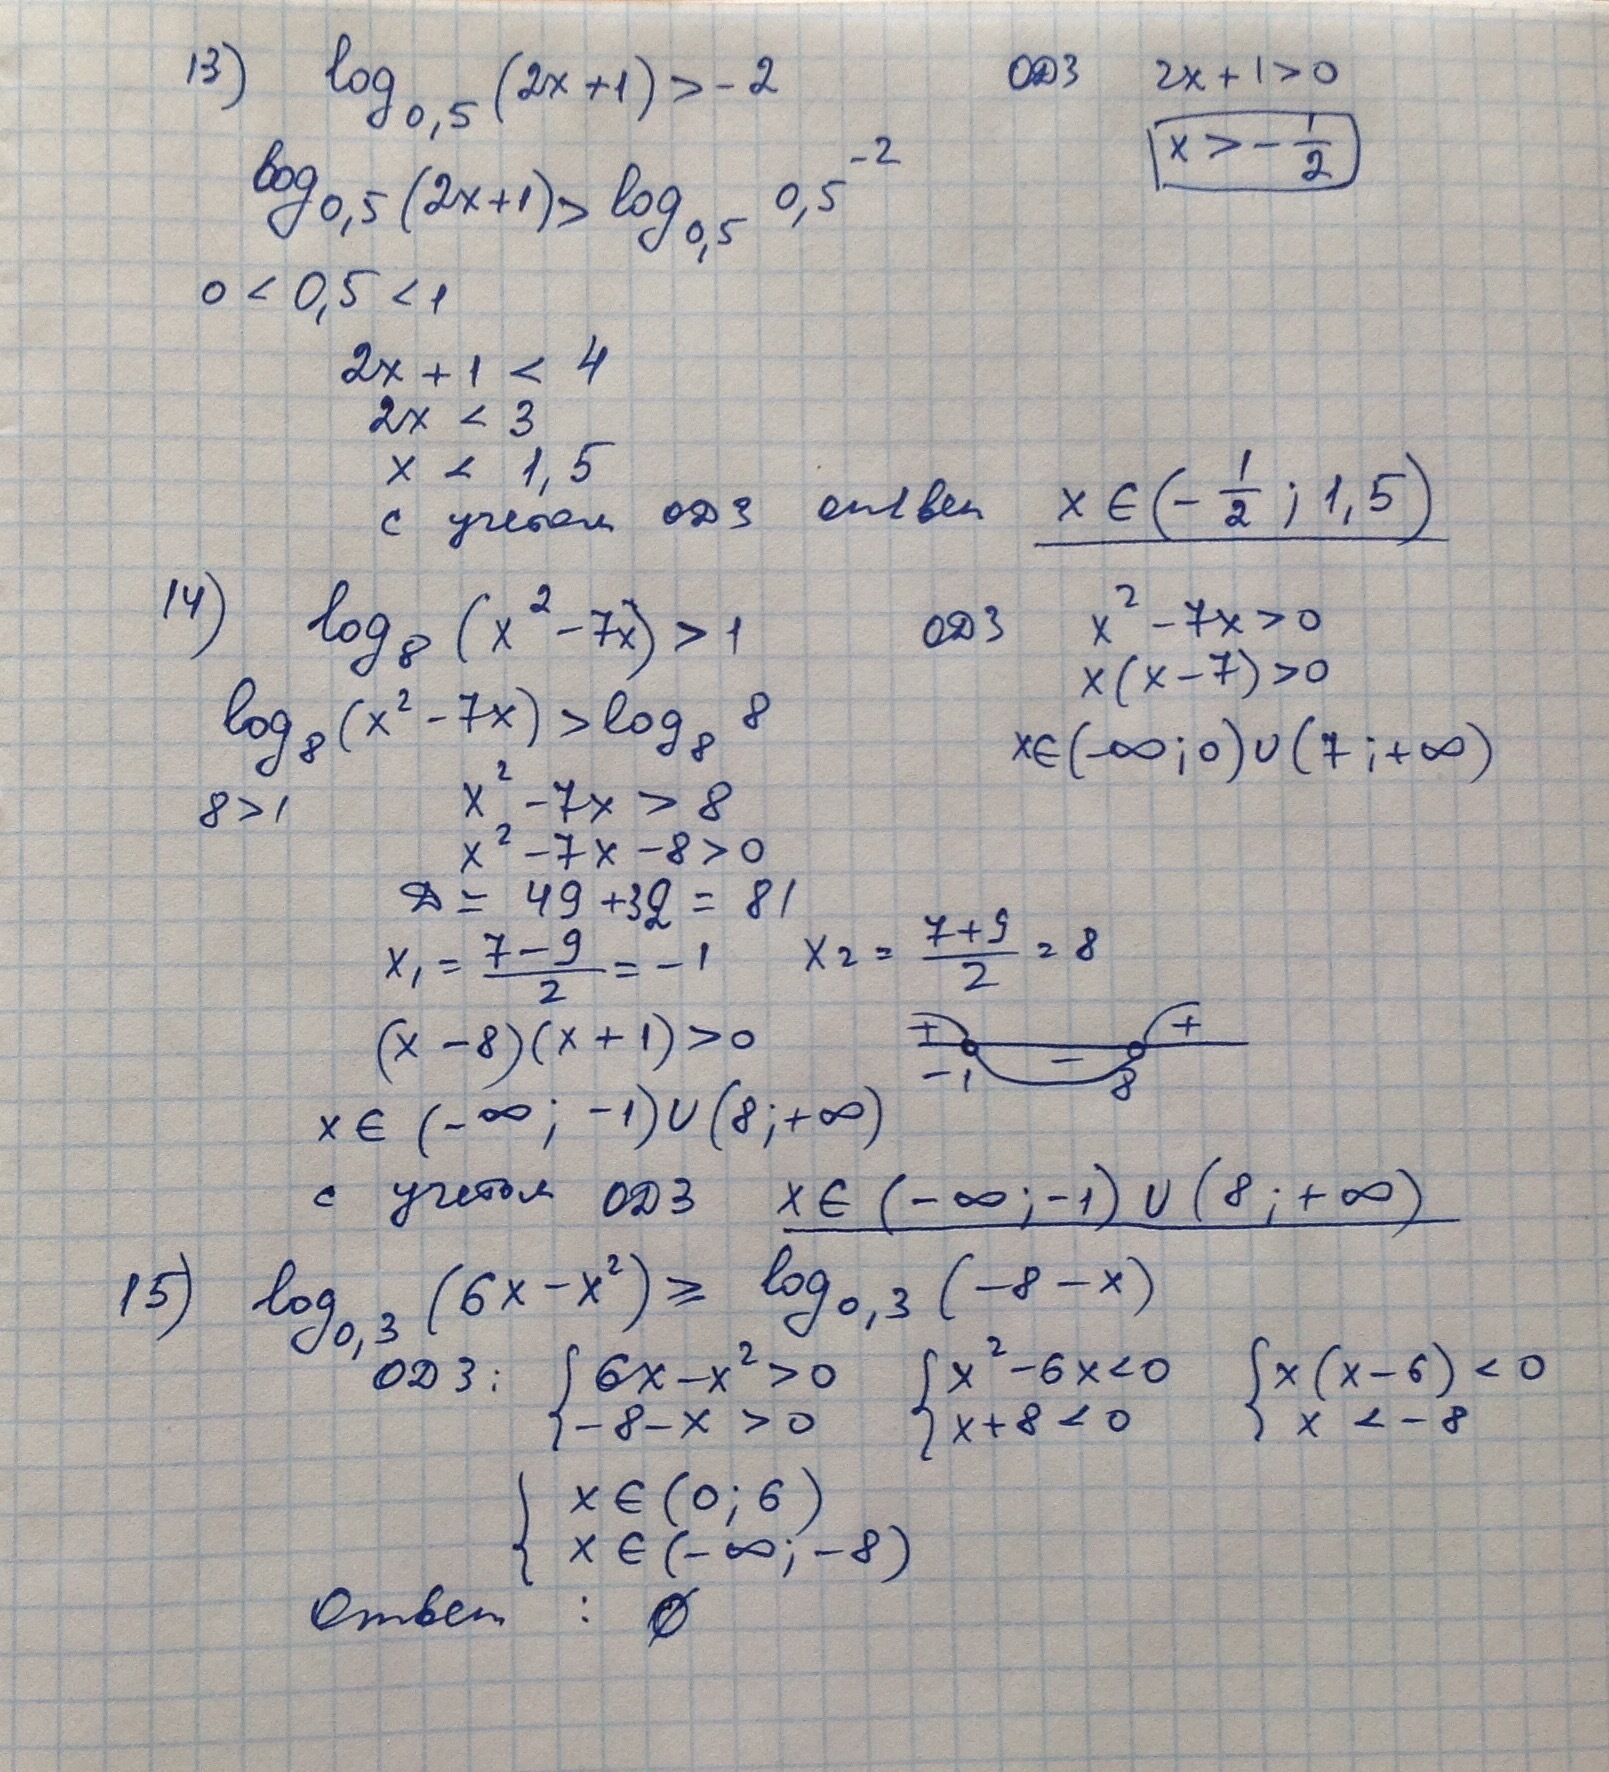 13) log₀,₅ (2x+1) > -2 ОДЗ 2x + 1 > 0
x > - 1/2
log₀,₅ (2x+1) > log₀,₅ 0,5⁻²
0 < 0,5 < 1
2x + 1 < 4
2x < 3
x < 1,5
с учетом ОДЗ ответ x ∈ (- 1/2 ; 1,5)
14) log₈ (x² - 7x) > 1 ОДЗ x² - 7x > 0
x(x - 7) > 0
log₈ (x² - 7x) > log₈ 8
x ∈ (-∞; 0) ∪ (7; +∞)
8 > 1 x² - 7x > 8
x² - 7x - 8 > 0
D = 49 + 32 = 81
x₁ = (7 - 9)/2 = -1 x₂ = (7 + 9)/2 = 8
(x - 8)(x + 1) > 0 + - +
-1 8
x ∈ (-∞; -1) ∪ (8; +∞)
с учетом ОДЗ x ∈ (-∞; -1) ∪ (8; +∞)
15) log₀,₃ (6x - x²) ≥ log₀,₃ (-8 - x)
ОДЗ: { 6x - x² > 0 { x² - 6x < 0 { x(x - 6) < 0
-8 - x > 0 x + 8 < 0 x < -8
{ x ∈ (0; 6)
x ∈ (-∞; -8)
Ответ : ∅